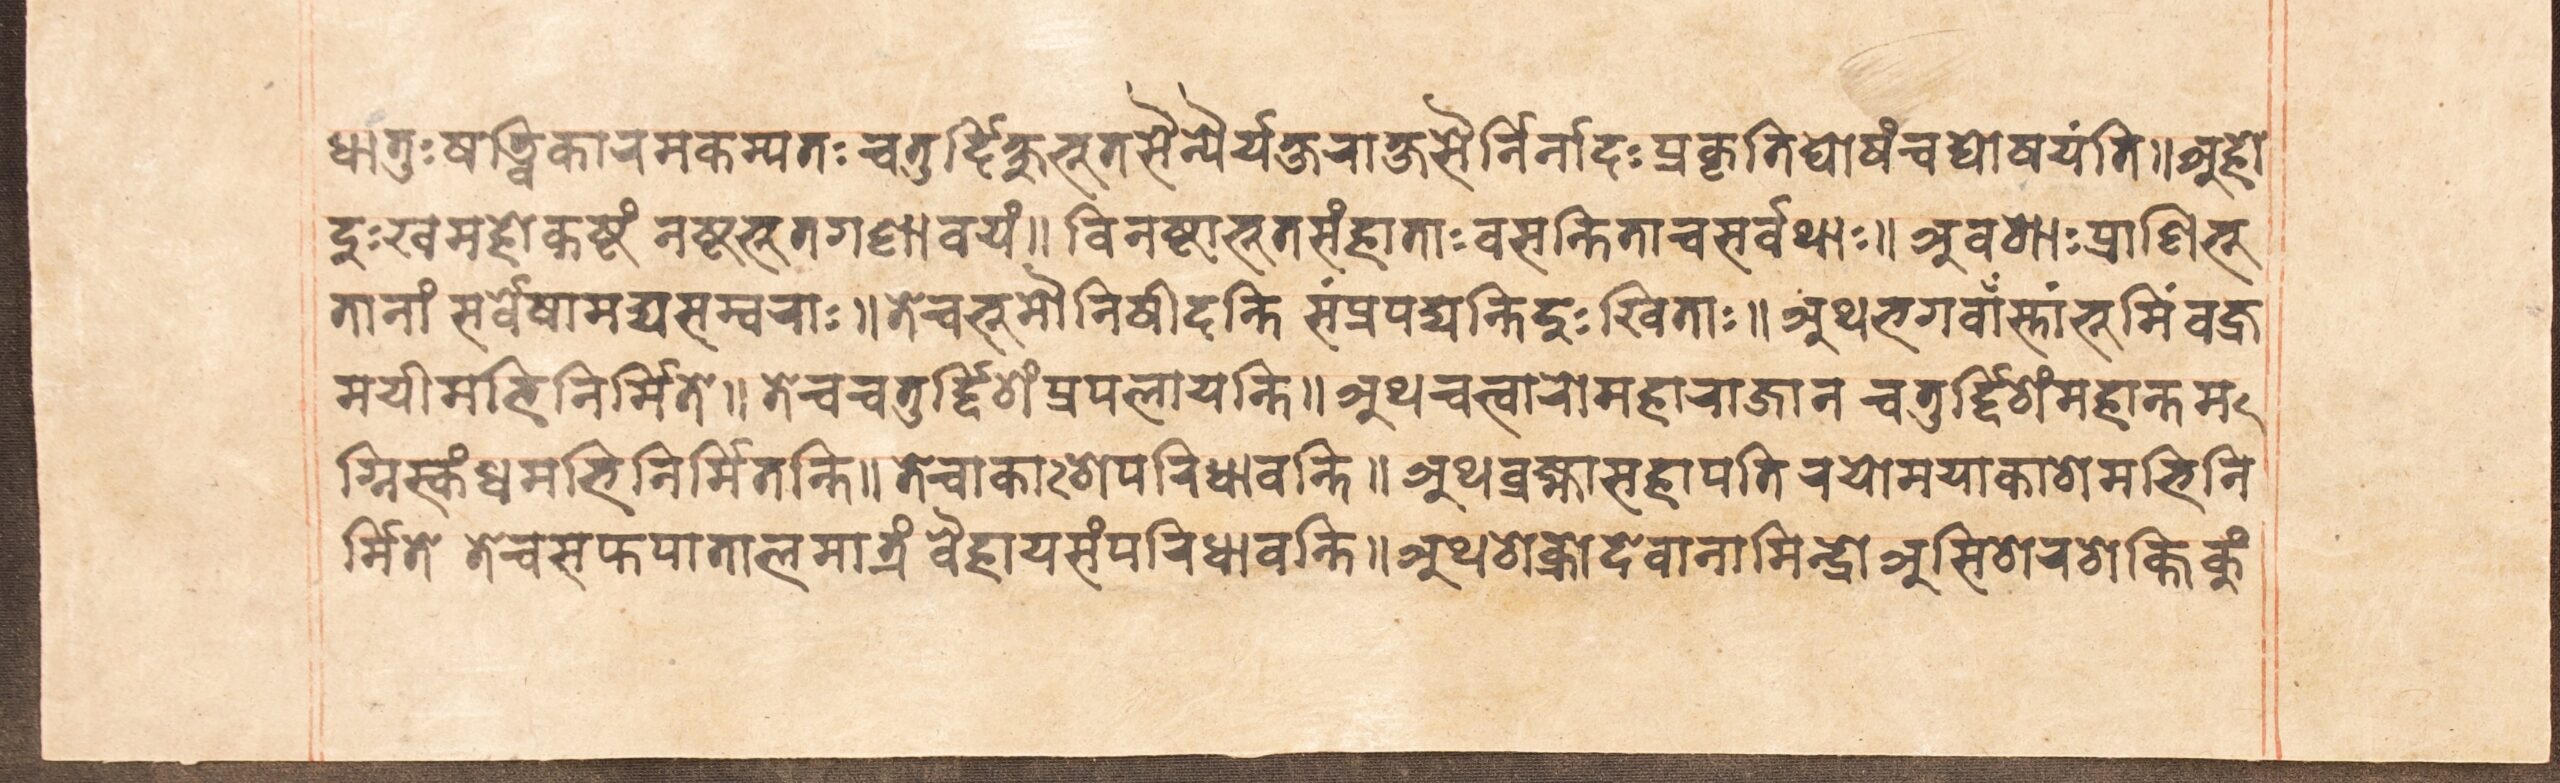 धातुः षड्विकारमकम्पतः चतुर्द्दिक्षु भूतसैन्यैर्यक्षराक्षसैर्निर्नादः प्रकृतिघोषं च घोषयंति॥ अहो
दुःखमहोकष्टं नष्टभूतगणावयं॥ विनष्टाभूतसंहाताः वसन्तिताचसर्वथाः॥ अवशाः प्राणिभू
तानां सर्वेषामद्यसम्वराः॥ तेचभूमौनिषीदन्ति संप्रपद्यन्तिदुःखिताः॥ अथभगवाँस्तांभूमिंवज्र
मयीमभिनिर्मिते॥ तेचचतुर्द्दिशंप्रपलायन्ति॥ अथचत्वारोमहाराजान चतुर्द्दिशंमहान्तम
ग्निस्कंधमभिनिर्मितन्ति॥ तेचाकाशेपरिधावन्ति॥ अथब्रह्मासहापति रयोमयाकाशमभिनि
र्मिते तेचसप्तपातालमात्रं वैहायसंपरिधावन्ति॥ अथशक्रोदेवानामिन्द्रो असिशरशक्तिकुं